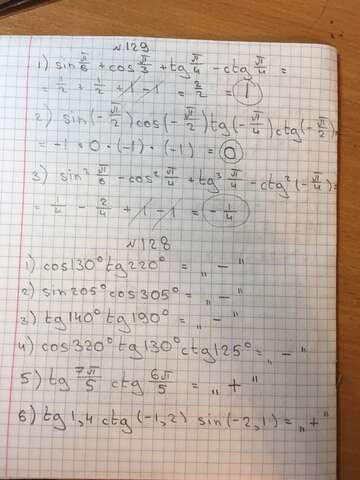 №129
1) sin π/6 + cos π/3 + tg π/4 - ctg π/4 =
= 1/2 + 1/2 + 1 - 1 = 2/2 = 1
2) sin(-π/2) cos(-π/2) tg(-π/4) ctg(-π/2)=
= -1 · 0 · (-1) · (-1) = 0
3) sin² π/6 - cos² π/4 + tg³ π/4 - ctg² (-π/4)=
= 1/4 - 2/4 + 1 - 1 = -1/4
№128
1) cos130° tg220° = „ - "
2) sin205° cos305° = „ - "
3) tg140° tg190° = „ - "
4) cos320° tg130° ctg125° = „ - "
5) tg 7π/5 ctg 6π/5 = „ + "
6) tg1,4 ctg(-1,2) sin(-2,1) = „ + "